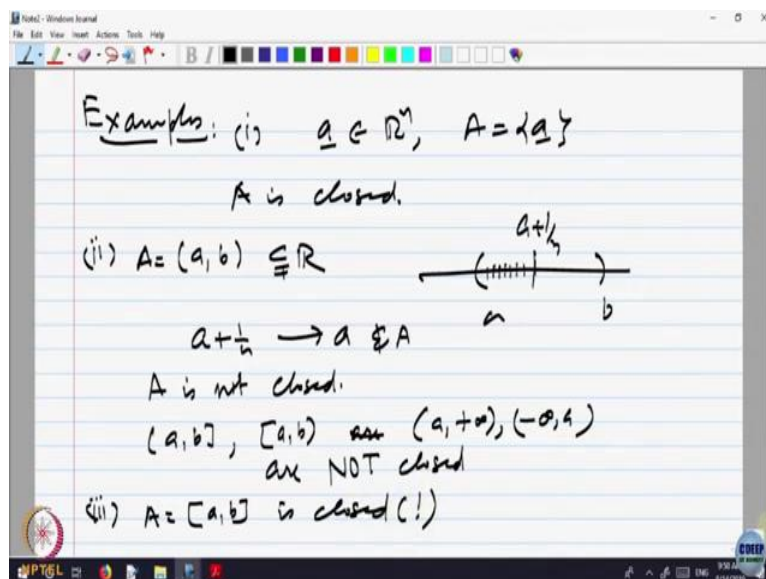 Note2 - Windows Journal
File Edit View Insert Actions Tools Help
B I
Examples: (i) a ∈ ℝⁿ, A = {a}
A is closed.
(ii) A = (a, b) ⊊ ℝ
a+1/n
a b
a + 1/n → a ∉ A
A is not closed.
(a, b], [a, b) (a, +∞), (-∞, a)
are NOT closed
(iii) A = [a, b] is closed (!)
NPTEL
CDEEP
ENG